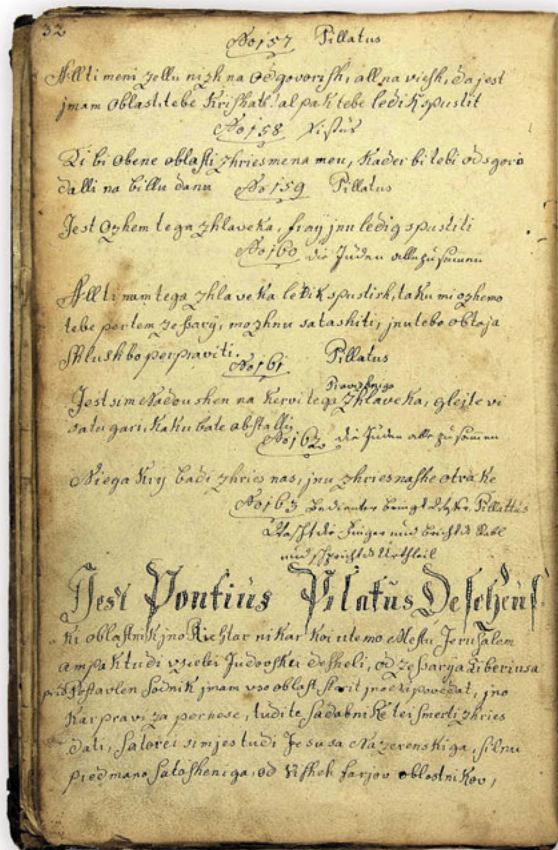 32
No 157 Pillatus
Allti meni zellu nizh na odgovorish, all na viesh, da jest
jmam oblast tebe krishati al pak tebe ledik spustit
No 158 Xistus
Ti bi obene oblasti zhries mena meu, kader bi tebi od sgoro
dalli na billu danu No 159 Pillatus
Jest ozhem tega zhlaveka, fraÿ jnu ledig spustiti
No 160 die Juden alle zusamen
Allti nam tega zhlaveka ledik spustish, taku mi ozhemo
tebe per tem zessarÿ, mozhnu satashiti, jnu tebe ob taja
shlushbo perpraviti.
No 161 Pillatus
Pravizhniga
Jest sim nadoushen na kervi tega zhlaveka, gleite vi
satu gari, kaku bate abstalli
No 162 die Juden alle zusamen
Niega krÿ badi zhries nas, jnu zhries nashe otrake
No 163 Bedienter bringt Pillattus
Wascht die Finger und bricht Stabl
und spricht Urtheil
Jest Pontius Pilatus Deschen
ki oblastnik jno Richtar nikar koi utemo Mestu Jerusalem
ampak tudi vselei Judovsku desheli, od zessarja Tiberiusa
Postavlen Sodnik jmam vso oblast storit jno sapovedat, jno
kar pravizo pernese, tudi te sadabnike tei smerti zhries
dati, satorei sim jes tudi Jesusa Nazerenskiga, silnu
pred mano satosheniga, od vishek farjov oblastnikov,